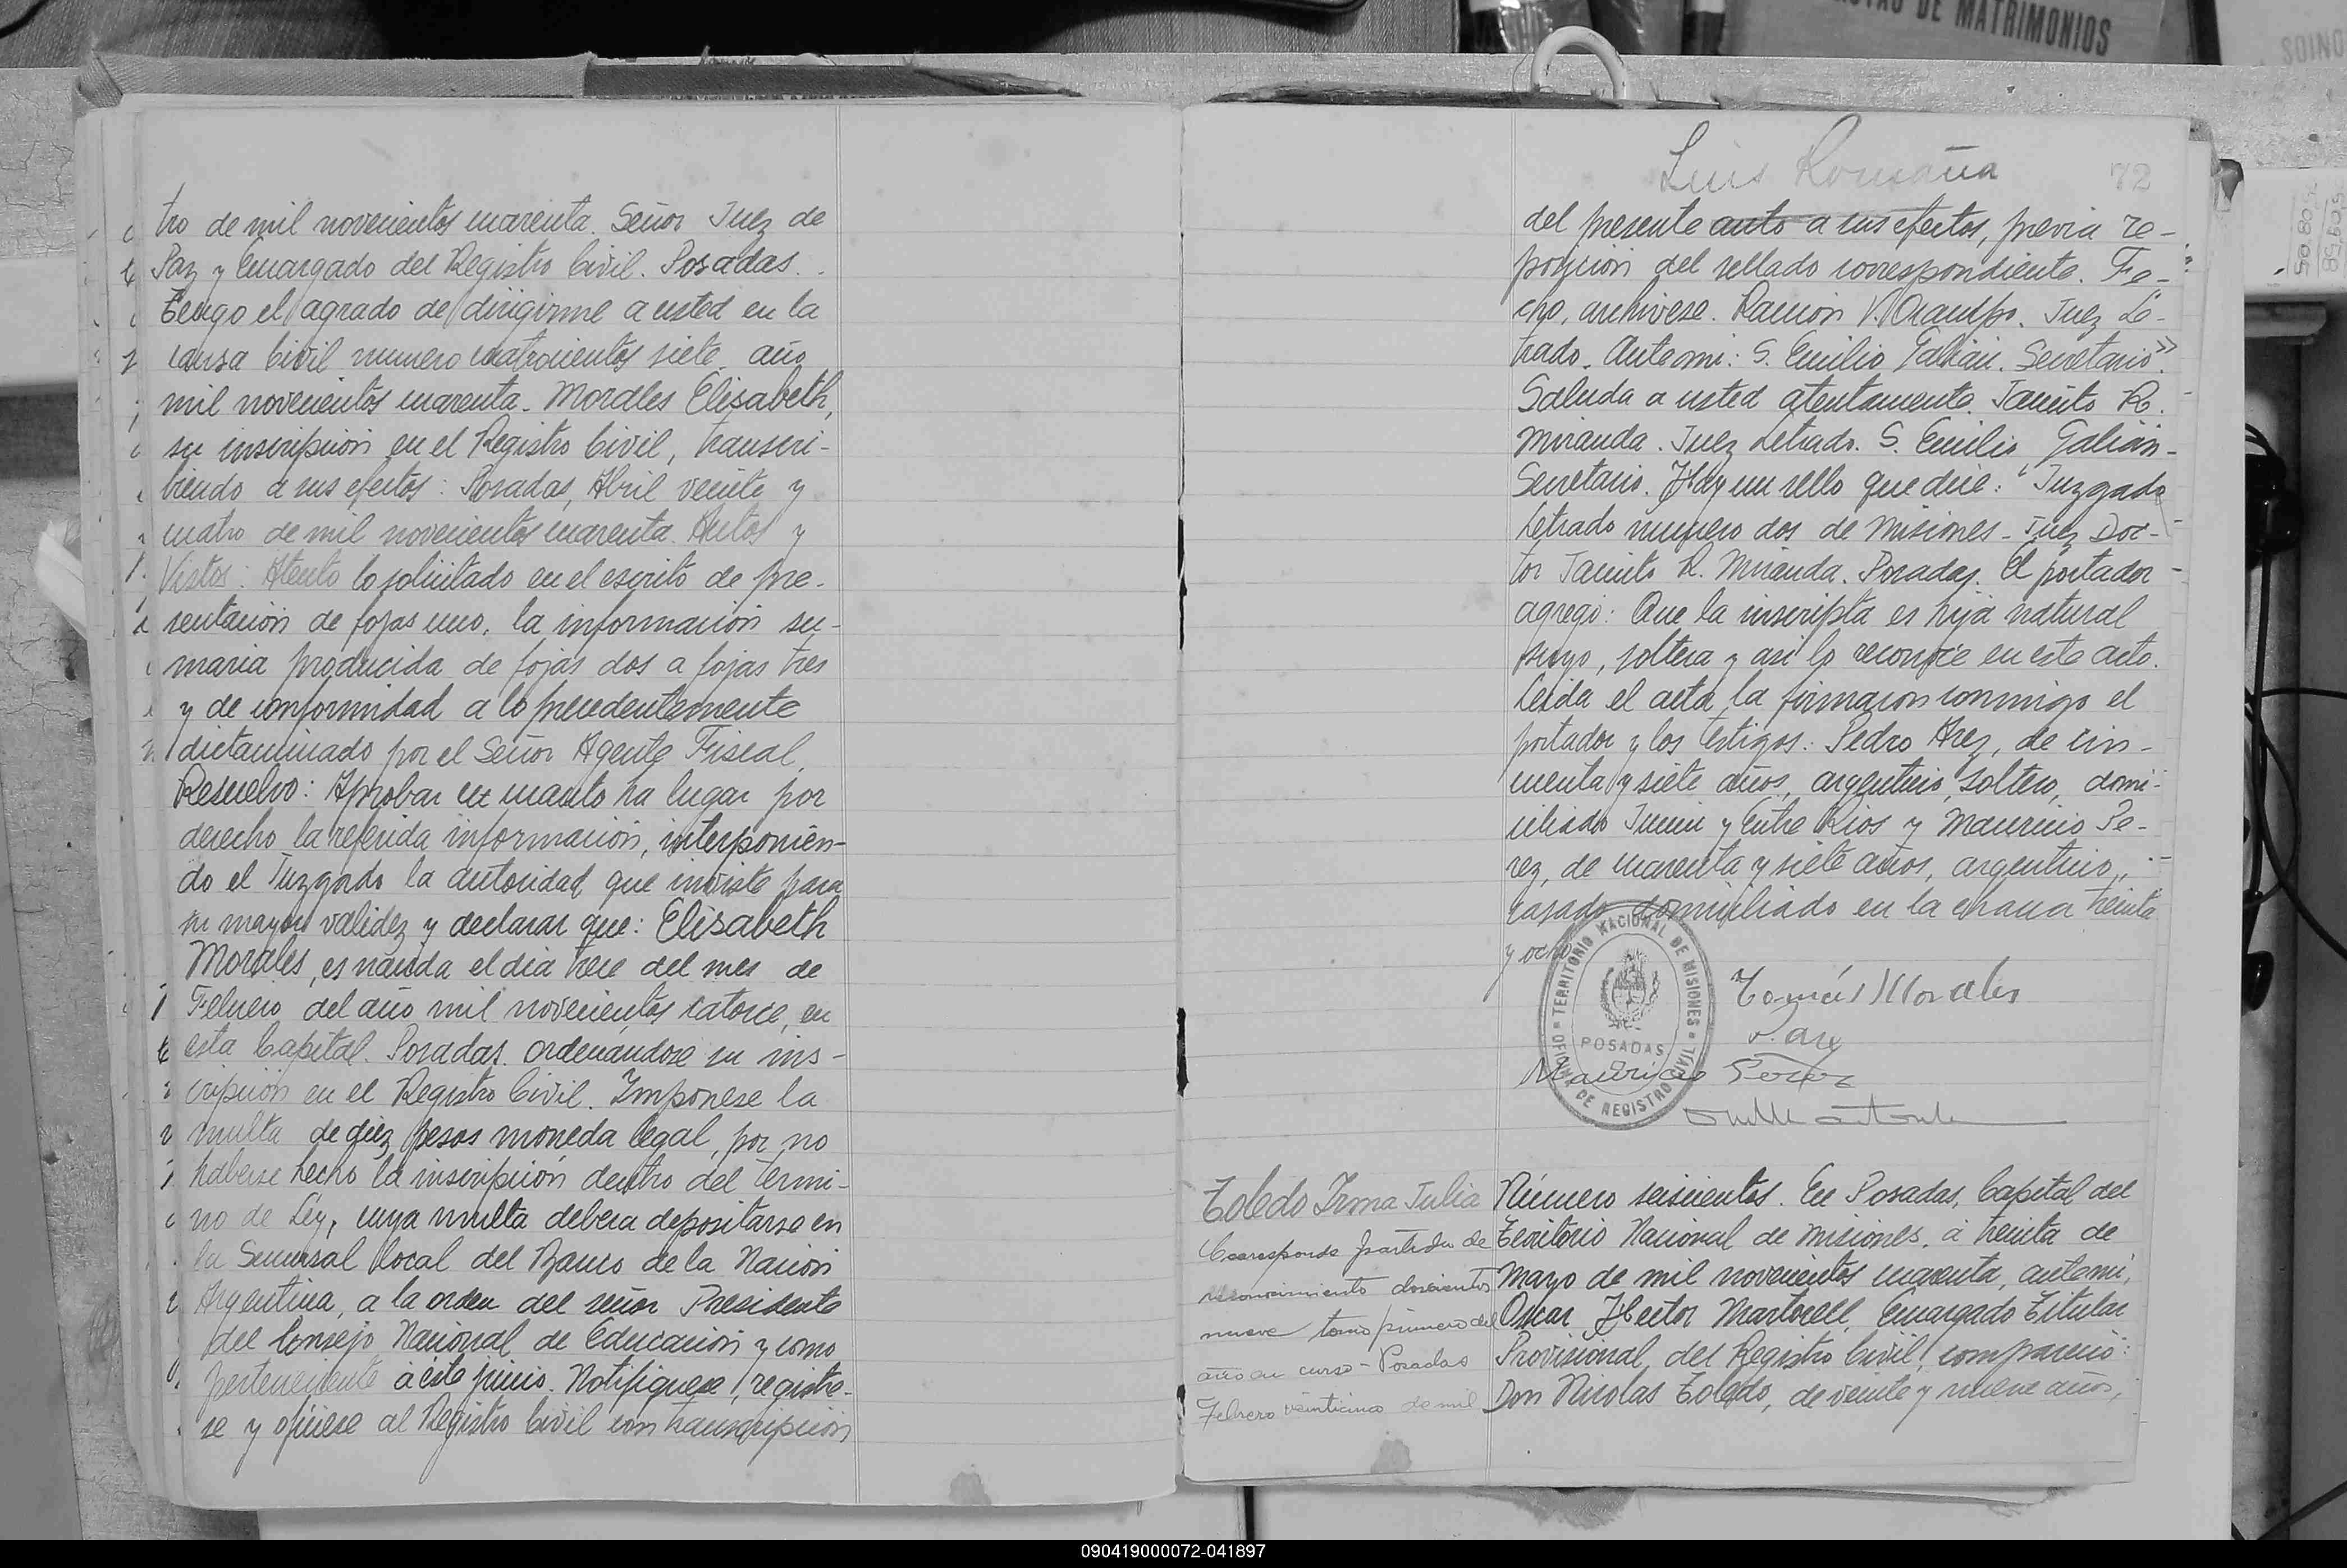 tro de mil novecientos cuarenta. Señor Juez de
Paz y Encargado del Registro Civil. Posadas.
Tengo el agrado de dirigirme a usted en la
causa Civil numero cuatrocientos siete año
mil novecientos cuarenta. Morales Elisabeth,
su inscripción en el Registro Civil, transcri-
biendo a sus efectos: Posadas, Abril veinte y
cuatro de mil novecientos cuarenta. Autos y
Vistos: Atento lo solicitado en el escrito de pre-
sentación de fojas uno, la información su-
maria producida de fojas dos a fojas tres
y de conformidad a lo precedentemente
dictaminado por el Señor Agente Fiscal,
Resuelvo: Aprobar en cuanto ha lugar por
derecho la referida información, interponien-
do el Juzgado la autoridad que inviste para
su mayor validez y declarar que: Elisabeth
Morales, es nacida el dia trece del mes de
Febrero del año mil novecientos catorce, en
esta Capital. Posadas. ordenandose su ins-
cripción en el Registro Civil. Imponese la
multa de diez pesos moneda legal, por no
haberse hecho la inscripción dentro del termi-
no de Ley, cuya multa debera depositarse en
la Sucursal local del Banco de la Nación
Argentina, a la orden del señor Presidente
del Consejo Nacional de Educación y como
perteneciente a éste juicio. Notifiquese, registre-
se y ofíciese al Registro Civil con transcripción
Luis Romaña
72
del presente auto a sus efectos, previa re-
posición del sellado correspondiente. Fe-
cho, archivese. Ramón V. Ocampo. Juez Le-
trado. Ante mi: S. Emilio Galián. Secretario".
Saluda a usted atentamente. Jacinto R.
Miranda. Juez Letrado. S. Emilio Galián-
Secretario. Hay un sello que dice: "Juzgado
Letrado numero dos de Misiones - Juez Doc-
tor Jacinto R. Miranda. Posadas. El portador
agregó: Que la inscripta es hija natural
suya, soltera y asi lo reconoce en este acto.
Leida el acta la firmaron conmigo el
portador y los testigos: Pedro Arez, de cin-
cuenta y siete años, argentino, soltero, domi-
ciliado Junin y Entre Rios y Mauricio Pe-
rez, de cuarenta y siete años, argentino,
casado, domiciliado en la chacra treinta
y ocho
TERRITORIO NACIONAL DE MISIONES
OFICINA DE REGISTRO CIVIL
POSADAS
Tomás Morales
P. Arez
Mauricio Perez
Toledo Irma Julia
Corresponde partida de
reconocimiento doscientos
nueve tomo primero del
año en curso - Posadas
Febrero veinticinco de mil
Número seiscientos. En Posadas, Capital del
Territorio Nacional de Misiones, a treinta de
Mayo de mil novecientos cuarenta, ante mi,
Oscar Hector Martorell, Encargado Titular
Provisional, del Registro Civil, compareció:
Don Nicolas Toledo, de veinte y nueve años,
DE MATRIMONIOS
090419000072-041897